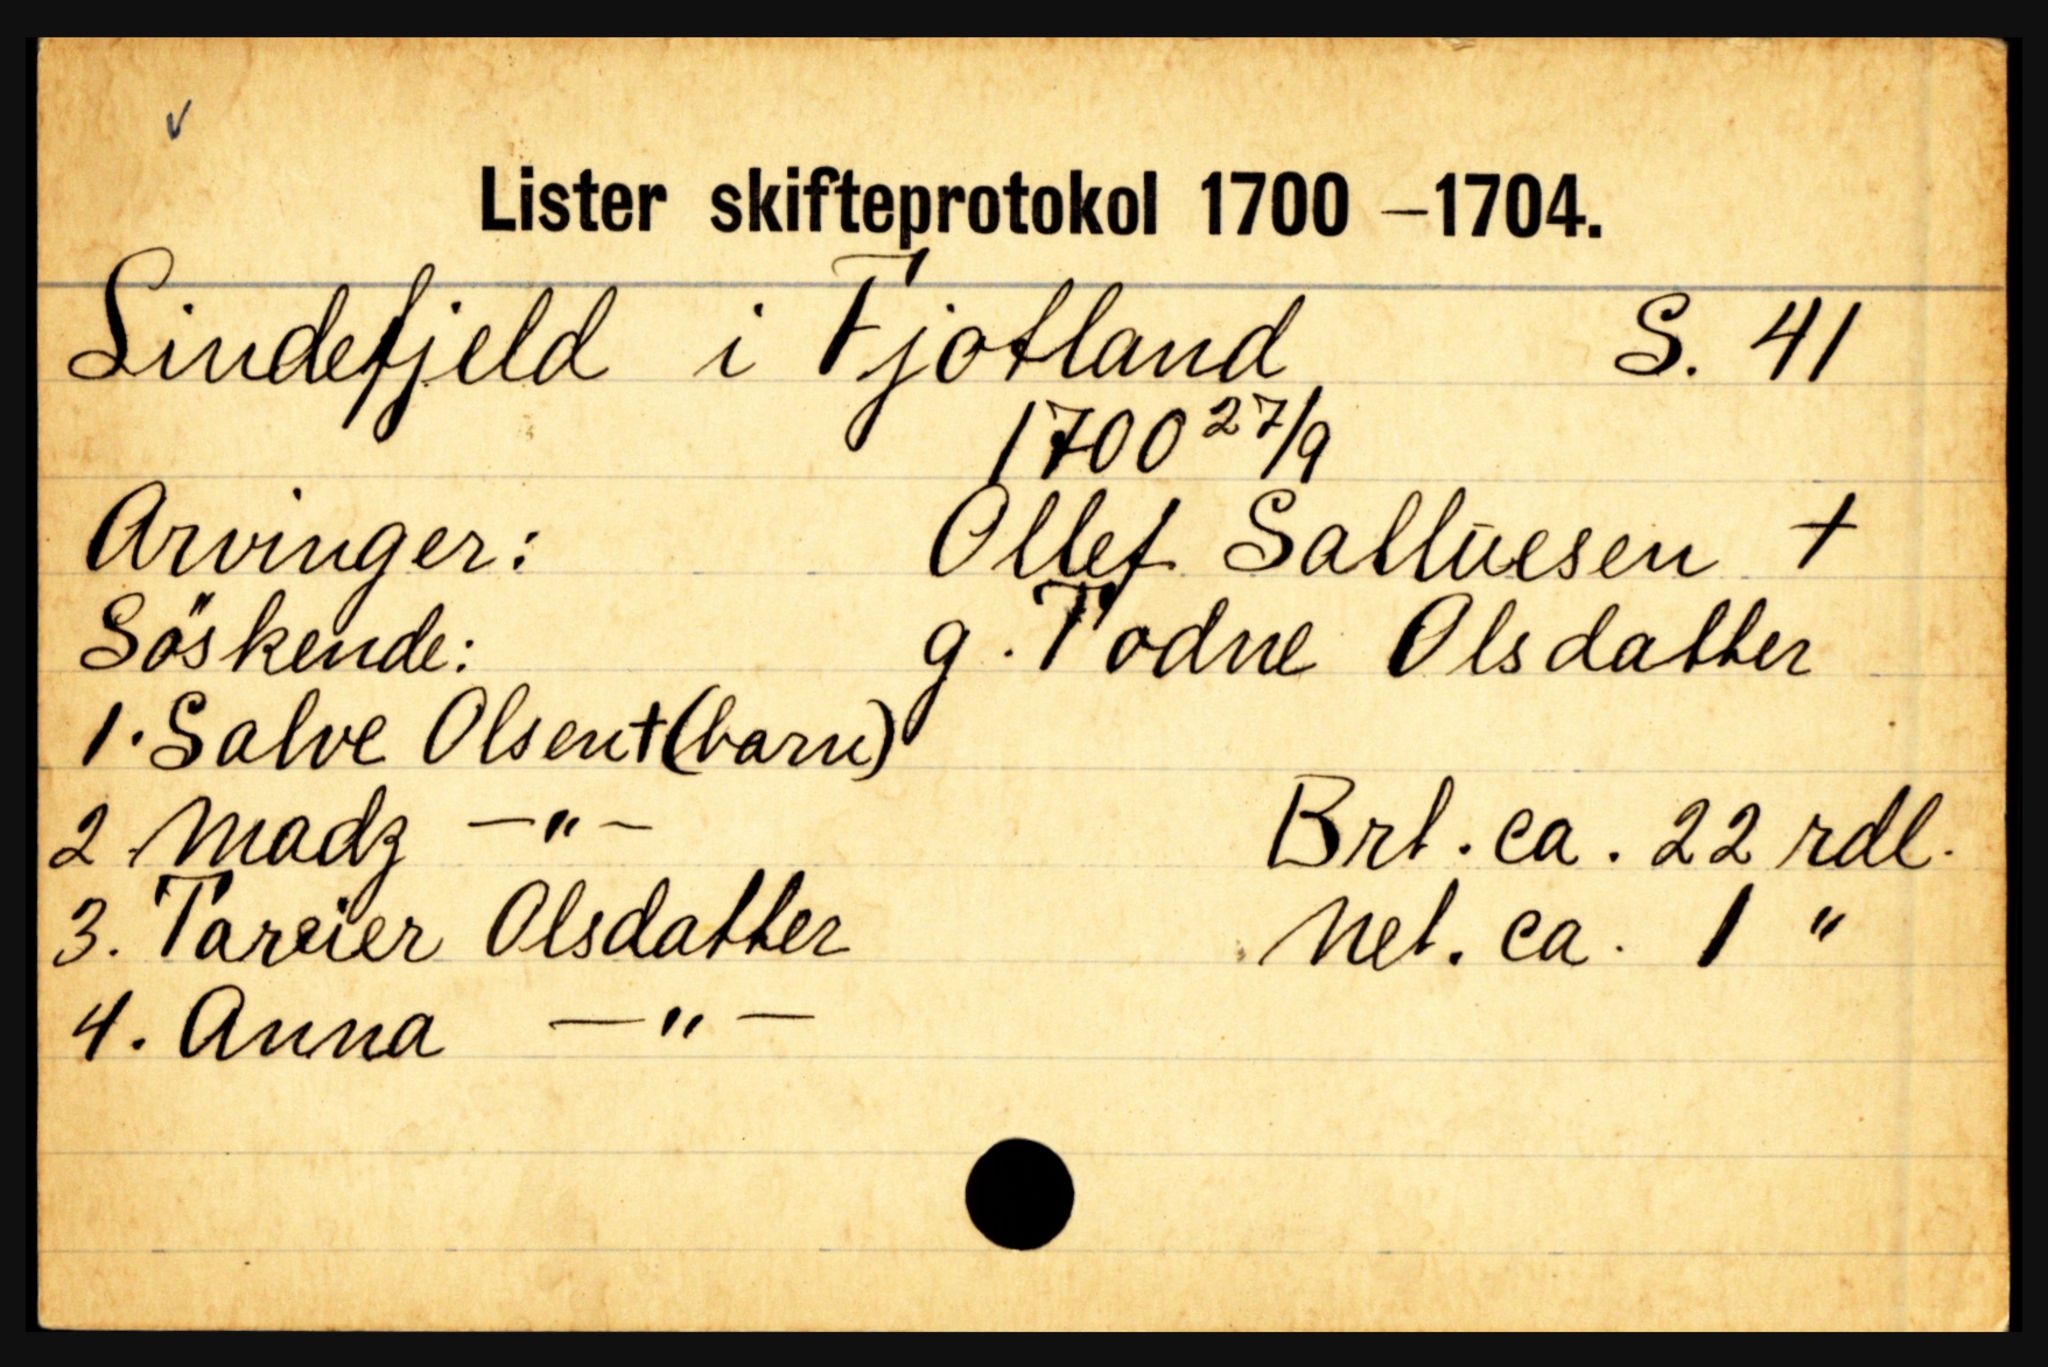 Lister skifteprotokol 1700 – 1704.
Lindefjeld i Fjotland S. 41
1700 27/9
Arvinger: Ollef Sallüesen +
Söskende: g. Todne Olsdatter
1. Salve Olsen + (barn)
2 Madz —"— Brt. ca. 22 rdl.
3. Tareier Olsdatter Net. ca. 1 "
4. Anna —"—